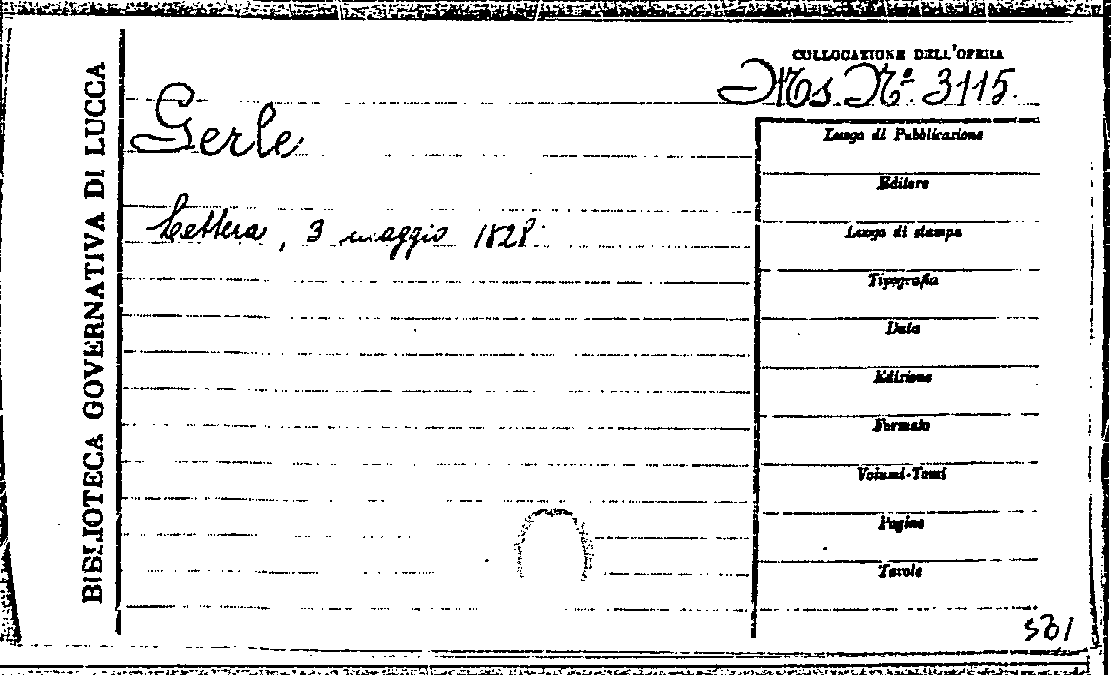 BIBLIOTECA GOVERNATIVA DI LUCCA
COLLOCAZIONE DELL'OPERA
Ms. Nº. 3115.
Gerle
Lettera, 3 maggio 1828.
Luogo di Pubblicazione
Editore
Luogo di stampa
Tipografia
Data
Edizione
Formato
Volumi-Tomi
Pagine
Tavole